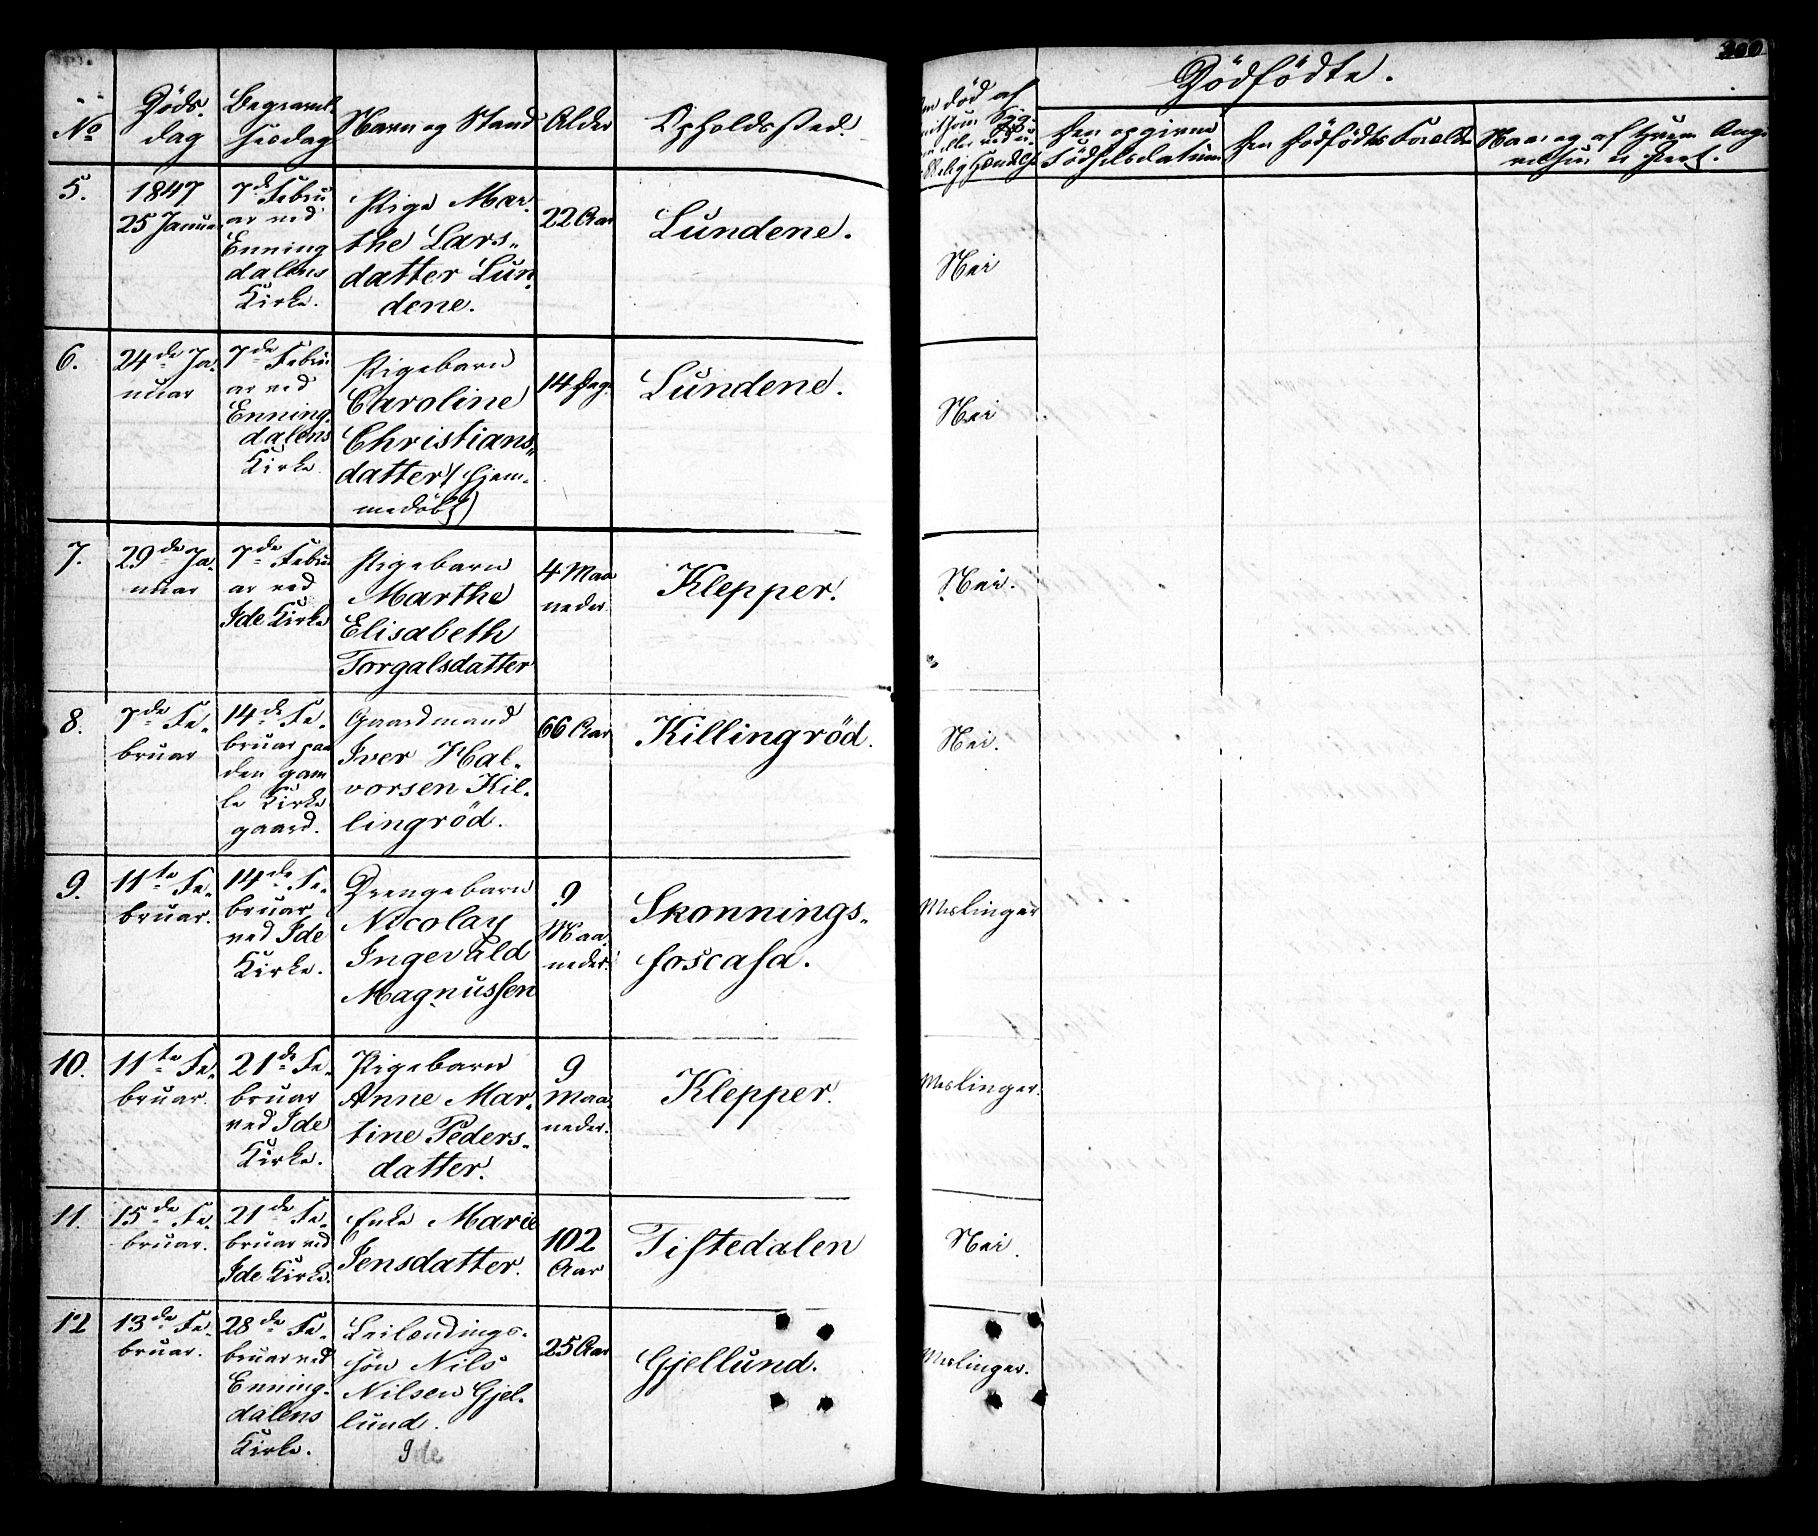 No
Döds-
dag
Begravel-
sesdag
Navn og Stand
Alder
Opholdssted.
Dödfödte.
5.
1847
25 Januar
7de Febru
ar ved
Enning
dalens
Kirke.
Pige Mar-
the Lars-
datter Lun-
dene.
22 Aar
Lundene.
Nei
6.
24de Ja-
nuar
7de Febru
ar ved
Enning-
dalens
Kirke.
Pigebarn
Caroline
Christians-
datter (hjem-
medöbt)
14 Dage
Lundene.
Nei
7.
29de Ja-
nuar
7de Febru
ar ved
Ide Kirke
Pigebarn
Marthe
Elisabeth
Torgalsdatter
4 Maa
neder.
Klepper.
Nei.
8.
7de Fe-
bruar
14de Fe-
bruar paa
den gam
le Kirke
gaard.
Gaardmand
Iver Hal-
vorsen Kil-
lingröd.
66 Aar
Killingröd.
Nei.
9.
11te Fe-
bruar.
14de Fe-
bruar
ved Ide
Kirke.
Drengebarn
Nicolay
Ingevald
Magnussen
9
Maa-
neder.
Skonnings-
foscasa.
Meslinger
10.
11te Fe-
bruar.
21de Fe-
bruar
ved Ide
Kirke.
Pigebarn
Anne Mar-
tine Peders-
datter.
9
Maa-
neder.
Klepper.
Meslinger.
11.
15de Fe-
bruar.
21de Fe-
bruar ved
Ide Kirke.
Enke Marie
Jensdatter.
102
Aar
Tistedalen
Nei.
12
13de Fe-
bruar.
28de Fe-
bruar ved
Enning-
dalens
Kirke.
Leilændings-
sön Nils
Nilsen Gjel-
lund.
25 Aar
Gjellund.
Meslinger.